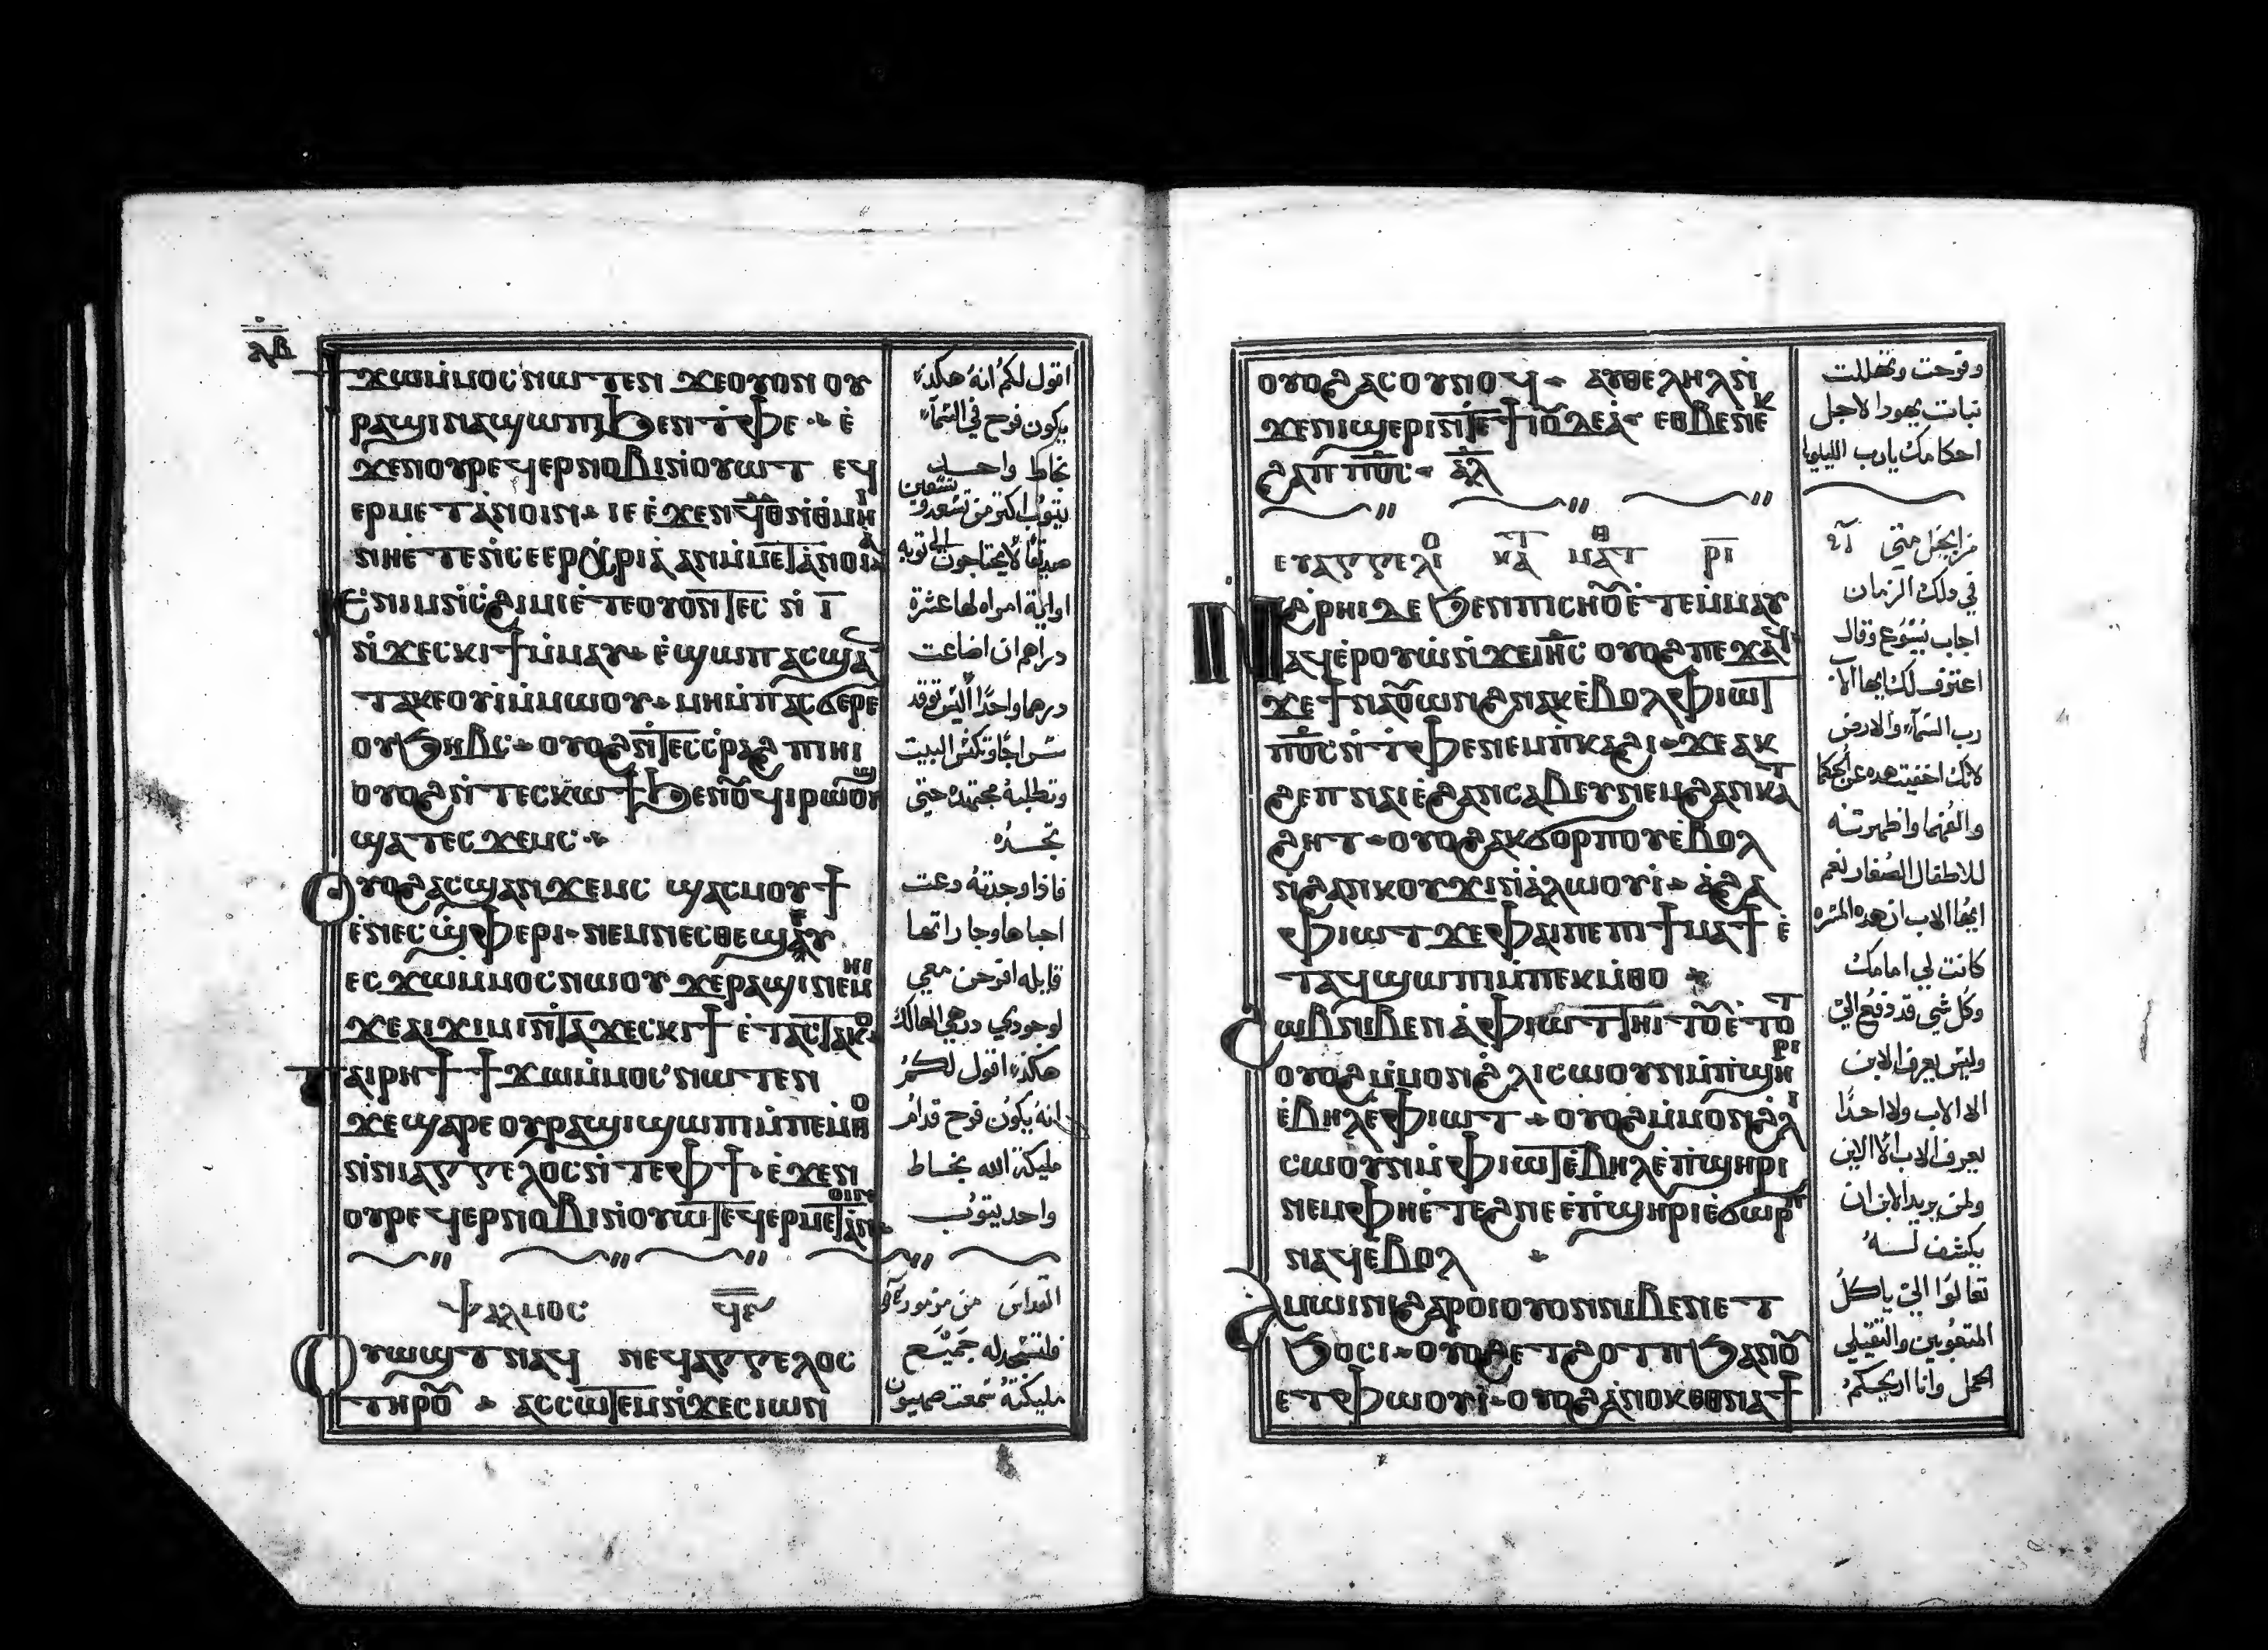 ⲗⲃ
ϯϫⲱⲙⲙⲟⲥ ⲛⲱⲧⲉⲛ ϫⲉⲟⲩⲟⲛ ⲟⲩ
ⲣⲁϣⲓ ⲛⲁϣⲱⲡⲓ ϧⲉⲛⲧⲫⲉ ⲉ̀
ϫⲉⲛⲟⲩⲣⲉϥⲉⲣⲛⲟⲃⲓ ⲛ̀ⲟⲩⲱⲧ ⲉϥ
ⲉⲣⲙⲉⲧⲁⲛⲟⲓⲛ ⲓⲉ ⲉ̀ϫⲉⲛ ϥ̅ⲑ̅ ⲛ̀ⲑⲙⲏⲓ
ⲛⲏⲉ̀ⲧⲉⲛ̀ⲥⲉⲉⲣⲭⲣⲓⲁ ⲁⲛ ⲙ̀ⲙⲉⲧⲁⲛⲟⲓⲁ
ⲓⲉ ⲛⲓⲙ ⲛ̀ⲥϩⲓⲙⲓ ⲉ̀ⲧⲉⲟⲩⲟⲛⲧⲉⲥ ⲛ̀ ⲓ̅
ⲛ̀ϫⲉⲥⲕⲓϯ ⲙ̀ⲙⲁⲩ ⲉ̀ϣⲱⲡ ⲁⲥϣⲁ
ⲧⲁⲕⲉⲟⲩⲓ ⲙ̀ⲙⲱⲟⲩ ⲙⲏ ⲙ̀ⲡⲁⲥϭⲉⲣⲉ
ⲟⲩϧⲏⲃⲥ ⲟⲩⲟϩ ⲛ̀ⲧⲉⲥⲥⲣⲁϩ ⲡⲓⲏⲓ
ⲟⲩⲟϩ ⲛ̀ⲧⲉⲥⲕⲱϯ ϧⲉⲛⲟⲩϥⲓⲣⲱⲟⲩϣ
ϣⲁⲧⲉⲥϫⲉⲙⲥ
ⲟⲩⲟϩ ⲁⲥϣⲁⲛϫⲉⲙⲥ ϣⲁⲥⲙⲟⲩϯ
ⲉ̀ⲛⲉⲥϣⲫⲉⲣⲓ ⲛⲉⲙ ⲛⲉⲥⲑⲉϣⲉⲩ
ⲉⲥϫⲱⲙⲙⲟⲥ ⲛⲱⲟⲩ ϫⲉ ⲣⲁϣⲓ ⲛⲉⲙⲏⲓ
ϫⲉ ⲁⲓϫⲓⲙⲓ ⲛ̀ⲧⲁϫⲉⲥⲕⲓϯ ⲉ̀ⲧⲁⲥⲧⲁⲕⲟ
ⲡⲁⲓⲣⲏϯ ϯϫⲱⲙⲙⲟⲥ ⲛⲱⲧⲉⲛ
ϫⲉ ϣⲁⲣⲉ ⲟⲩⲣⲁϣⲓ ϣⲱⲡⲓ ⲙ̀ⲡⲉⲙⲑⲟ
ⲛ̀ⲛⲓⲁⲅⲅⲉⲗⲟⲥ ⲛ̀ⲧⲉ ⲫϯ ⲉ̀ϫⲉⲛ
ⲟⲩⲣⲉϥⲉⲣⲛⲟⲃⲓ ⲛ̀ⲟⲩⲱⲧ ⲉϥⲉⲣⲙⲉⲧⲁⲛⲟⲓⲛ
ⲯⲁⲗⲙⲟⲥ ϥ̅ⲋ̅
ⲟⲩⲱϣⲧ ⲛⲁϥ ⲛⲉϥⲁⲅⲅⲉⲗⲟⲥ
ⲧⲏⲣⲟⲩ ⲁⲥⲥⲱⲧⲉⲙ ⲛ̀ϫⲉ ⲥⲓⲱⲛ
اقول لكم انه هكذا
يكون فرح في السماء
بخاط واحد
يتوب اكثر من تسعه وتسعين
صديقا لا يحتاجون الى توبه
او اية امراه لها عشرة
دراهم ان اضاعت
درهما واحدا اليس توقد
سراجا وتكنس البيت
وتطلبه مجتهده حتى
تجده
فاذا وجدته دعت
احباها وجاراتها
قايله افرحن معي
لوجودي درهمي الهالك
هكذا اقول لكم
انه يكون فرح قدام
مليكة الله بخاط
واحد يتوب
القداس من مزمور
فلتسجد له جميع
مليكته سمعت صهيون
ⲟⲩⲟϩ ⲁⲥⲟⲩⲛⲟϥ ⲁⲩⲑⲉⲗⲏⲗ ⲛ̀
ϫⲉ ⲛⲓϣⲉⲣⲓ ⲛ̀ⲧⲉ ϯⲓⲟⲩⲇⲉⲁ ⲉⲑⲃⲉ ⲛⲉⲕ
ϩⲁⲡ ⲡ̅ⲟ̅ⲥ̅ ⲁ̅ⲗ̅
ⲉⲩⲁⲅⲅⲉⲗⲓⲟ ⲕⲁⲧ ⲙⲁⲧⲑ ⲣ̅ⲓ̅
ⲛ̀ϩⲣⲏⲓ ⲇⲉ ϧⲉⲛ ⲡⲓⲥⲏⲟⲩ ⲉ̀ⲧⲉⲙⲙⲁⲩ
ⲁϥⲉⲣⲟⲩⲱ̀ ⲛ̀ϫⲉ ⲓⲏⲥ ⲟⲩⲟϩ ⲡⲉϫⲁϥ
ϫⲉ ϯⲛⲁⲟⲩⲱⲛϩ ⲛⲁⲕ ⲉ̀ⲃⲟⲗ ⲫⲓⲱⲧ
ⲡ̅ⲟ̅ⲥ̅ ⲛ̀ⲧⲫⲉ ⲛⲉⲙ ⲡ̀ⲕⲁϩⲓ ϫⲉ ⲁⲕ
ϩⲉⲡ ⲛⲁⲓ ⲉ̀ϩⲁⲛⲥⲁⲃⲉⲩ ⲛⲉⲙ ϩⲁⲛⲕⲁⲧ
ϩⲏⲧ ⲟⲩⲟϩ ⲁⲕϭⲟⲣⲡⲟⲩ ⲉ̀ⲃⲟⲗ
ⲛ̀ϩⲁⲛⲕⲟⲩϫⲓ ⲛ̀ⲁⲗⲱⲟⲩⲓ̀ ⲁϩⲁ
ⲫⲓⲱⲧ ϫⲉ ⲫⲁⲓ ⲡⲉ ⲡⲓϯⲙⲁϯ ⲉ̀
ⲧⲁϥϣⲱⲡⲓ ⲙ̀ⲡⲉⲕⲙ̀ⲑⲟ
ϩⲱⲃ ⲛⲓⲃⲉⲛ ⲁ̀ ⲫⲓⲱⲧ ⲧⲏⲓⲧⲟⲩ ⲉ̀ⲧⲟⲧ
ⲟⲩⲟϩ ⲙ̀ⲙⲟⲛ ϩⲗⲓ ⲥⲱⲟⲩⲛ ⲙ̀ⲡ̀ϣⲏⲣⲓ
ⲉ̀ⲃⲏⲗ ⲉ̀ⲫⲓⲱⲧ ⲟⲩⲟϩ ⲙ̀ⲙⲟⲛ ϩⲗⲓ
ⲥⲱⲟⲩⲛ ⲙ̀ⲫⲓⲱⲧ ⲉ̀ⲃⲏⲗ ⲉ̀ⲡ̀ϣⲏⲣⲓ
ⲛⲉⲙ ⲫⲏ ⲉ̀ⲧⲉϩⲛⲉ ⲡ̀ϣⲏⲣⲓ ⲉ̀ϭⲱⲣⲡ
ⲛⲁϥ ⲉ̀ⲃⲟⲗ
ⲁⲙⲱⲓⲛⲓ ϩⲁⲣⲟⲓ ⲟⲩⲟⲛ ⲛⲓⲃⲉⲛ ⲉⲧ
ϧⲟⲥⲓ ⲟⲩⲟϩ ⲉⲧϩⲟⲣⲡ ϧⲁ ⲛⲟⲩ
ⲉⲧⲫⲱⲟⲩⲓ̀ ⲟⲩⲟϩ ⲁⲛⲟⲕ ⲉⲑⲛⲁϯ
وفرحت وتهللت
بنات يهودا لاجل
احكامك يا رب الليلويا
من انجيل متى
في ذلك الزمان
اجاب يسوع وقال
اعترف لك ايها الاب
رب السماء والارض
لانك اخفيت هذه عن الحكما
والفهما واظهرتها
للاطفال الصغار نعم
ايها الاب ان هذه المسره
كانت لي امامك
وكل شي قد دفع الي
وليس يعرف الابن
الا الاب ولا احدا
يعرف الاب الا الابن
ولمن يريد الابن ان
يكشف له
تعالوا الي يا كل
المتعوبين والثقيلي
الحمل وانا اريحكم